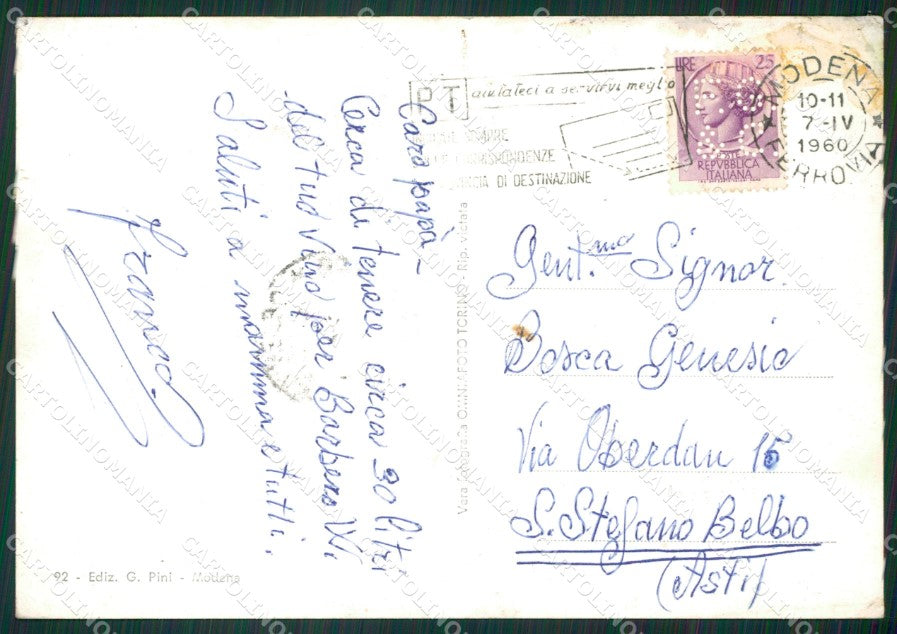 Caro papà -
Cerca di tenere circa 30 litri
del tuo vino per Barbero. Vi
Saluti a mamma e tutti.
Franco
PT aiutateci a servirvi meglio
CORRISPONDENZE
DI DESTINAZIONE
LIRE 25
POSTE
REPVBBLICA
ITALIANA
MODENA
10-11
7-IV
1960
FERROVIA
Gent.mo Signor
Bosca Genesio
Via Oberdan 15
S. Stefano Belbo
(Asti)
Vera Fotografia OMNIAFOTO TORINO - Rip. vietata
92 - Ediz. G. Pini - Modena
CARTOLINOMANIA